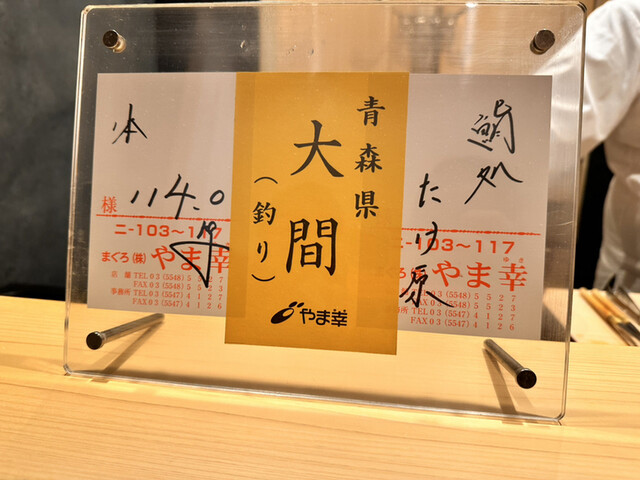 鮨処
たけ原
ニ-103～117
やま幸
ゆき
店舗 TEL 03 (5548) 5527
FAX 03 (5548) 5526
事務所 TEL 03 (5547) 4127
FAX 03 (5547) 4126
青森県
大間
(釣り)
やま幸
本
114.0
様
ニ-103～117
まぐろ(株) やま幸
店舗 TEL 03 (5548) 5527
FAX 03 (5548) 5526
事務所 TEL 03 (5547) 4127
FAX 03 (5547) 4126